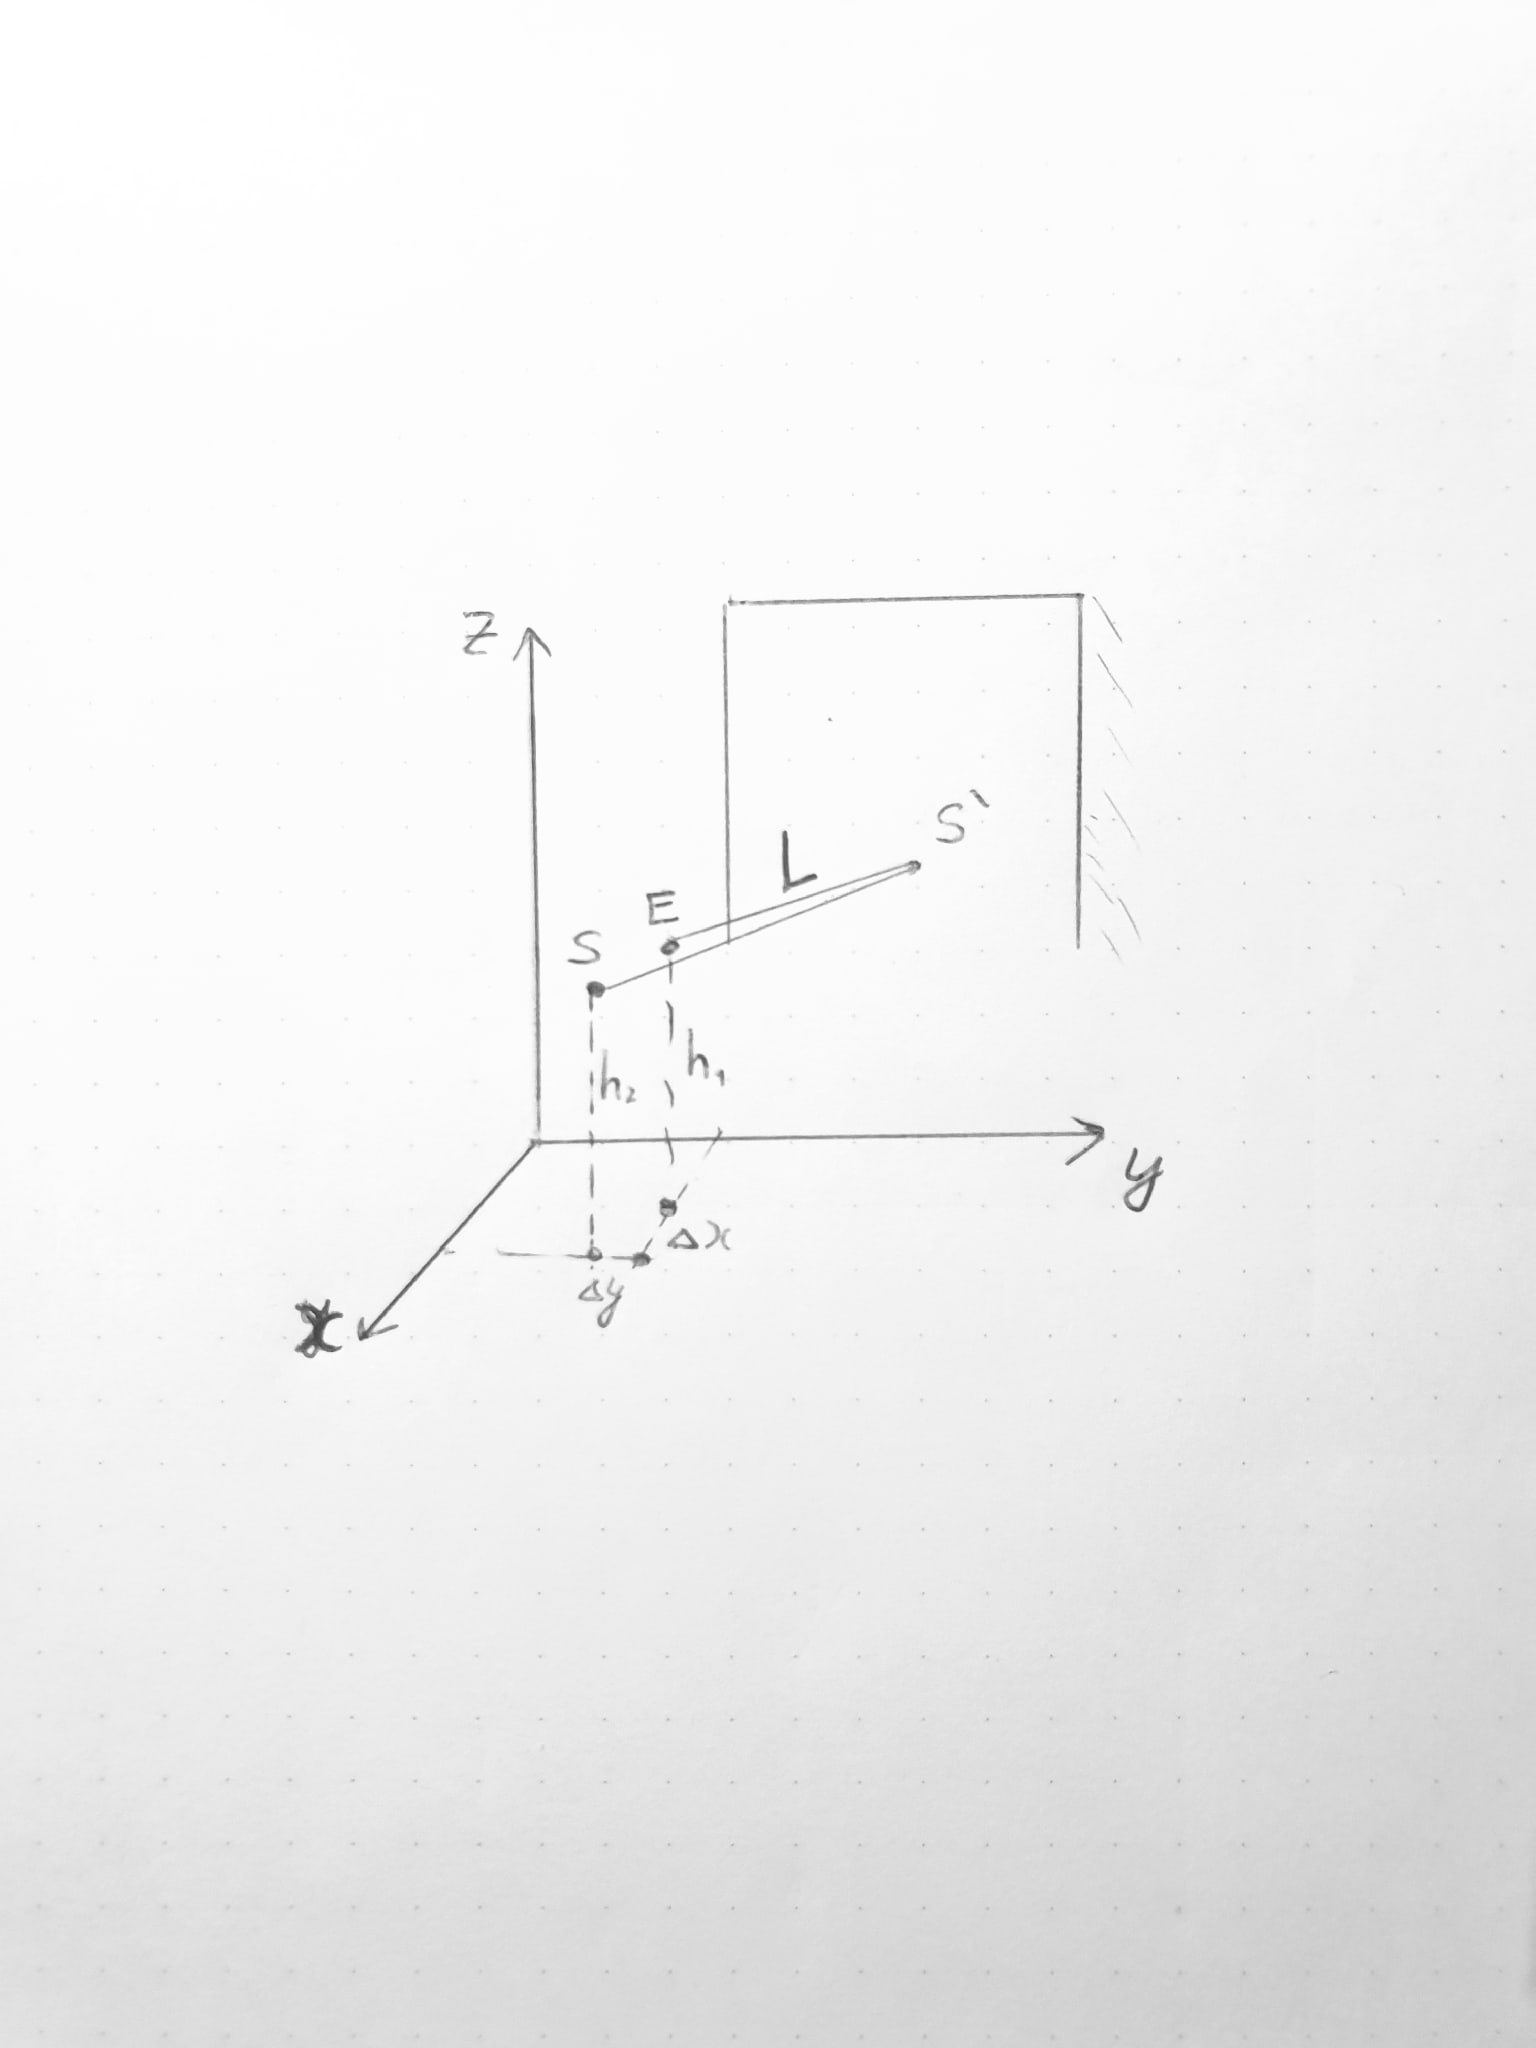 Z
S'
L
E
S
h₁
h₂
y
Δx
Δy
x